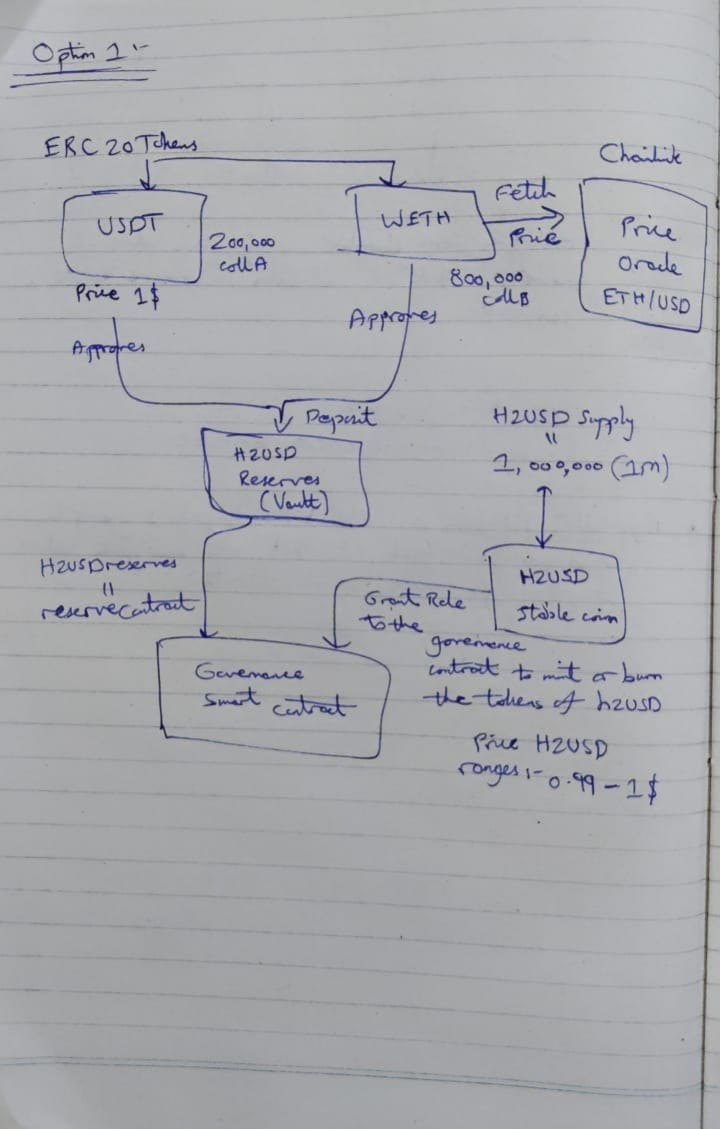 Option 1 :-
ERC 20 Tokens
USDT
200,000
coll A
Price 1$
Approves
WETH
800,000
coll B
Approves
Fetch
Price
Chainlik
Price
Oracle
ETH/USD
Deposit
H2USD
Reserves
(Vault)
H2USD Supply
=
1,000,000 (1m)
H2USD
Stable coin
H2USD reserves
=
reserve contract
Grant Role
to the
governance
contract to mint or burn
the tokens of h2USD
Governance
Smart contract
Price H2USD
ranges :- 0.99 - 1 $